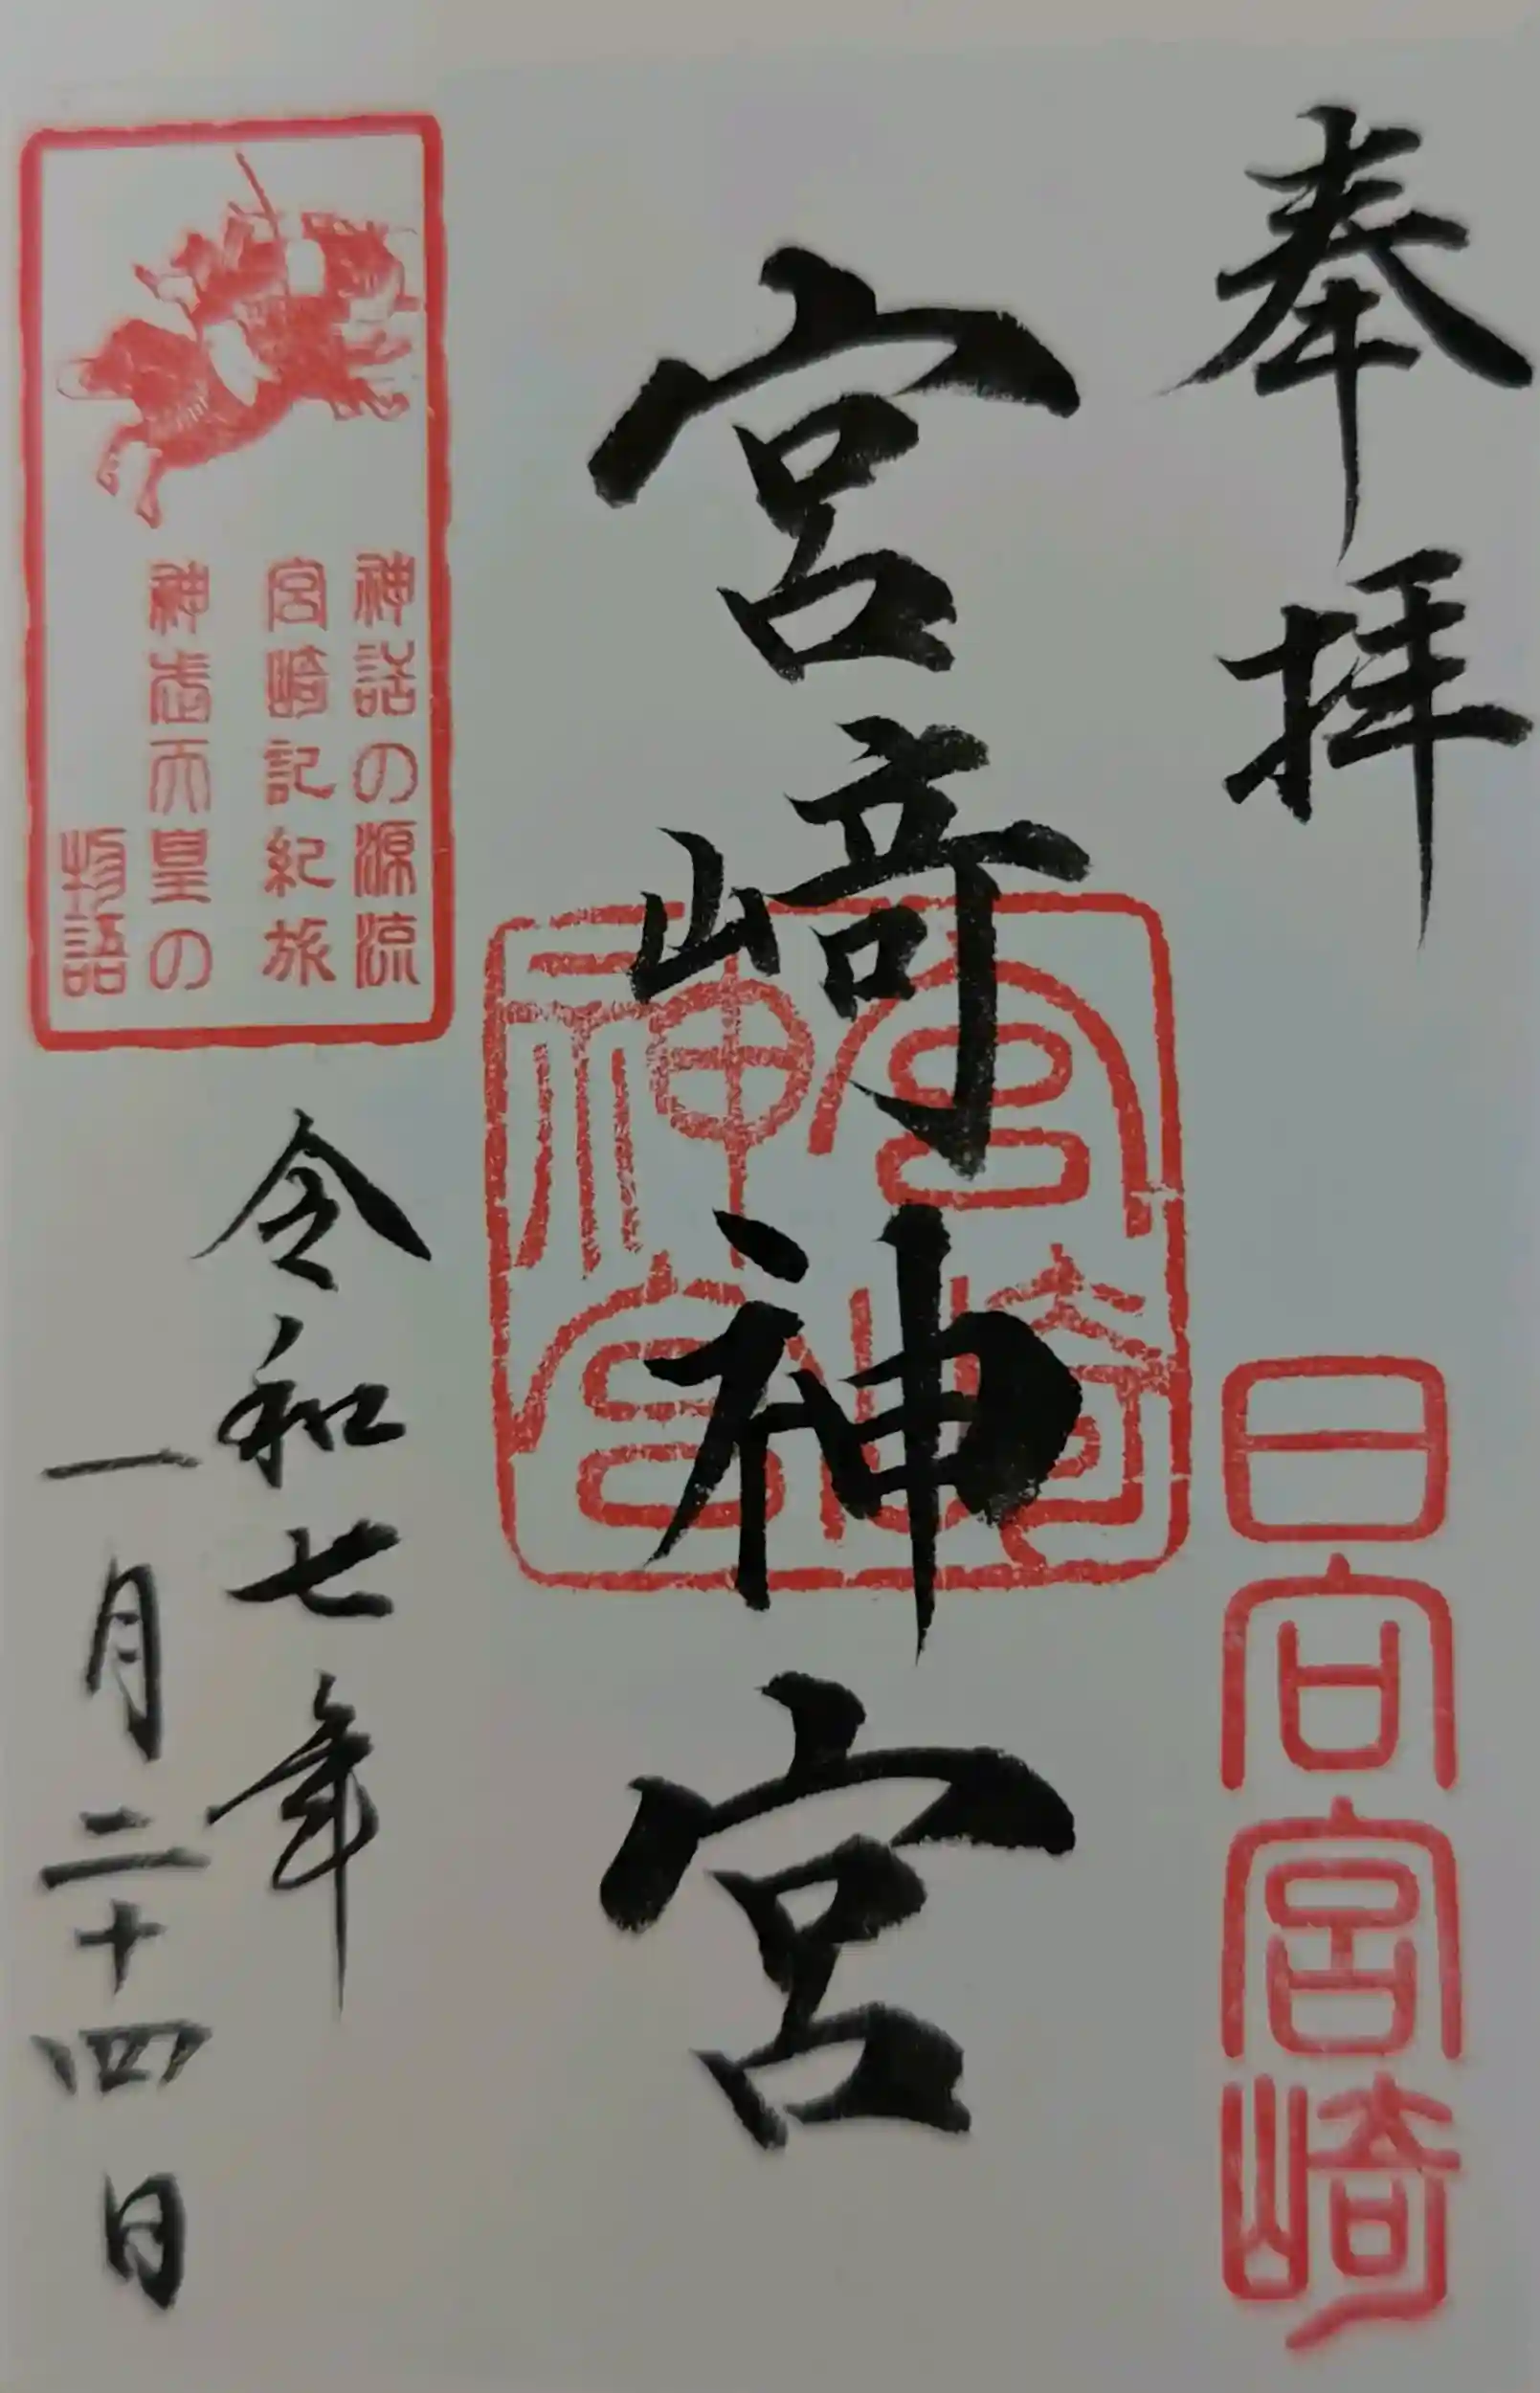 奉拝
日向宮崎
宮﨑神宮
宮崎
神宮
神話の源流
宮崎記紀旅
神武天皇の
物語
令和七年
一月二十四日